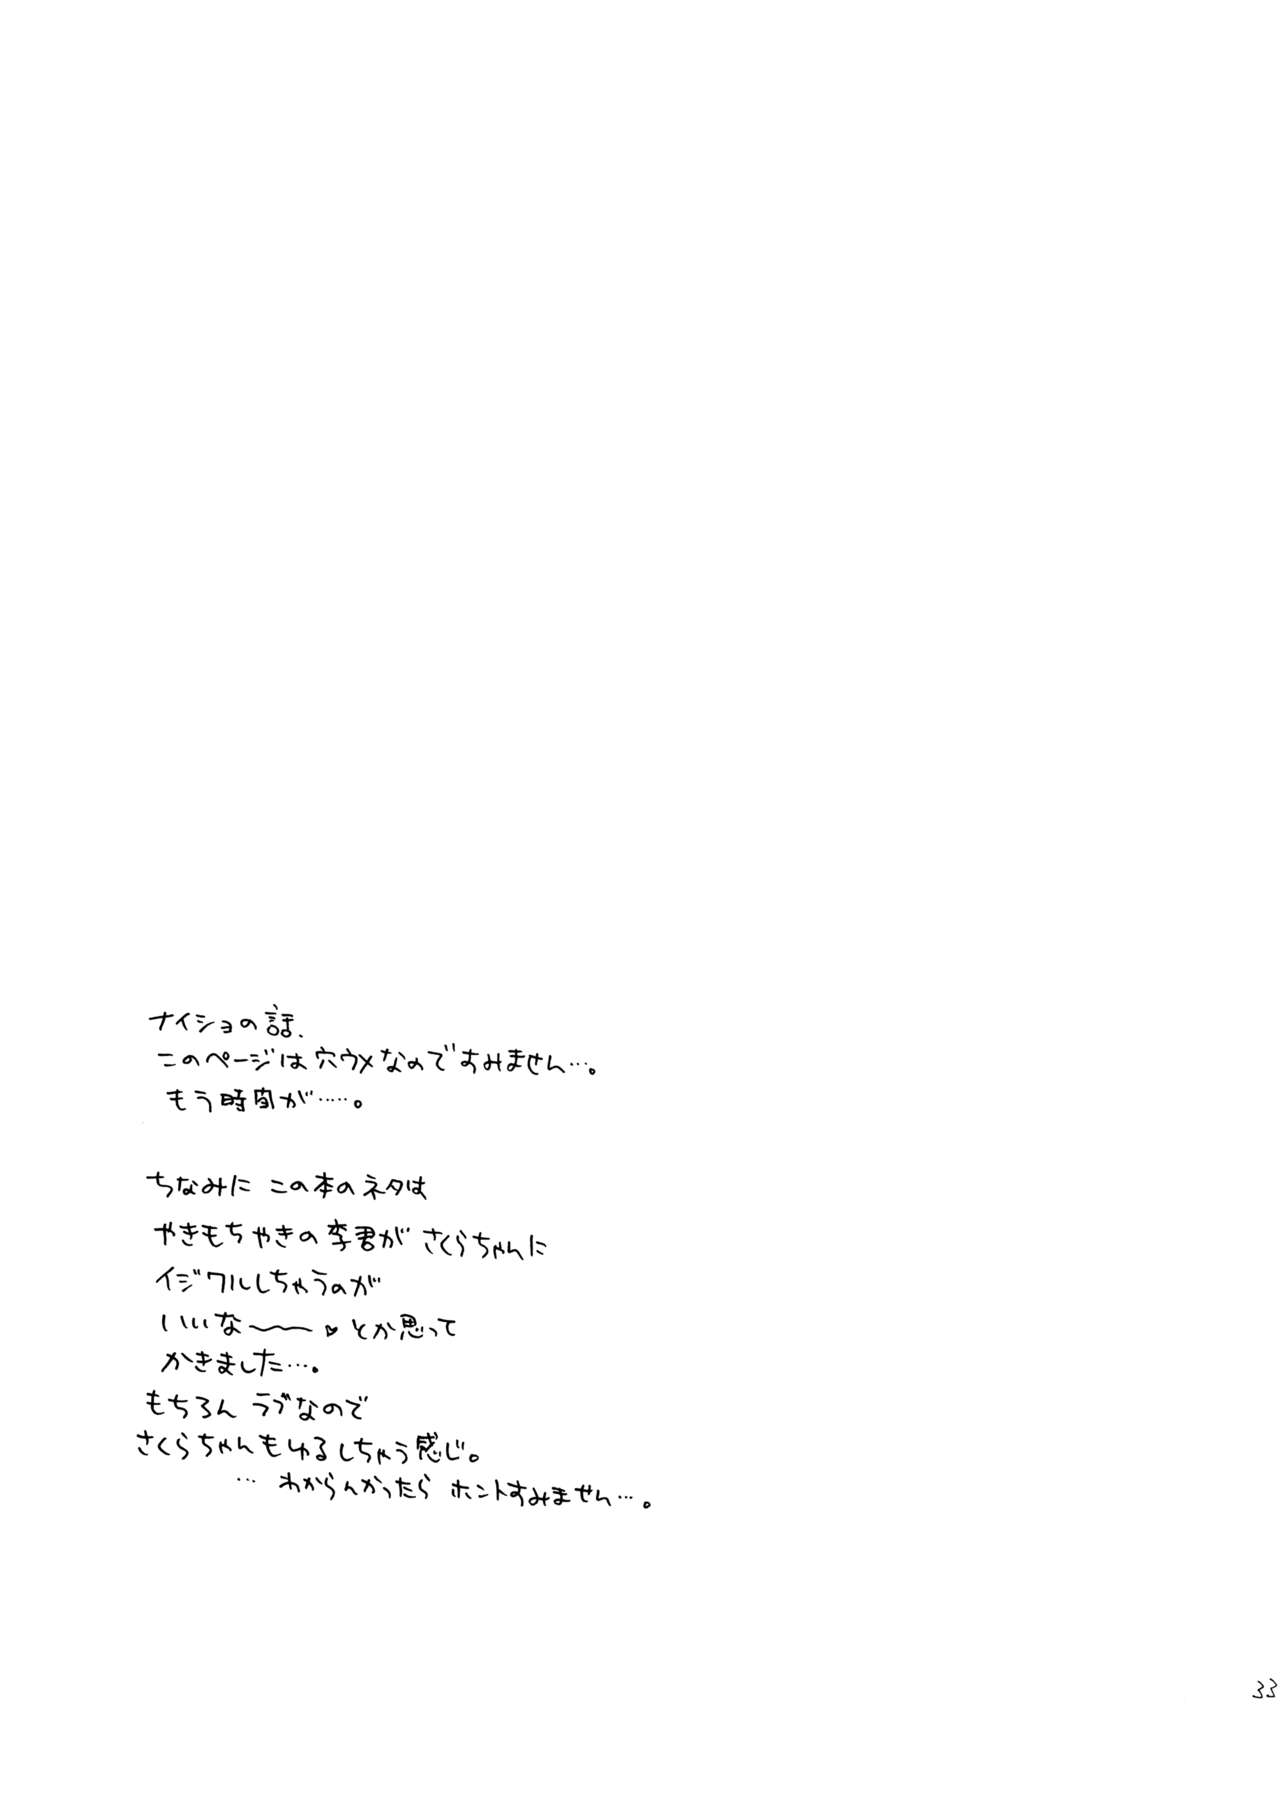 ナイショの話、
このページは穴ウメなのですみません…。
もう時間が……。
ちなみに この本のネタは
やきもちやきの李君が さくらちゃんに
イジワルしちゃうのが
いいな〜〜♥とか思って
かきました…。
もちろん ラブなので
さくらちゃんもゆるしちゃう感じ。
… わからんかったら ホントすみません…。
33